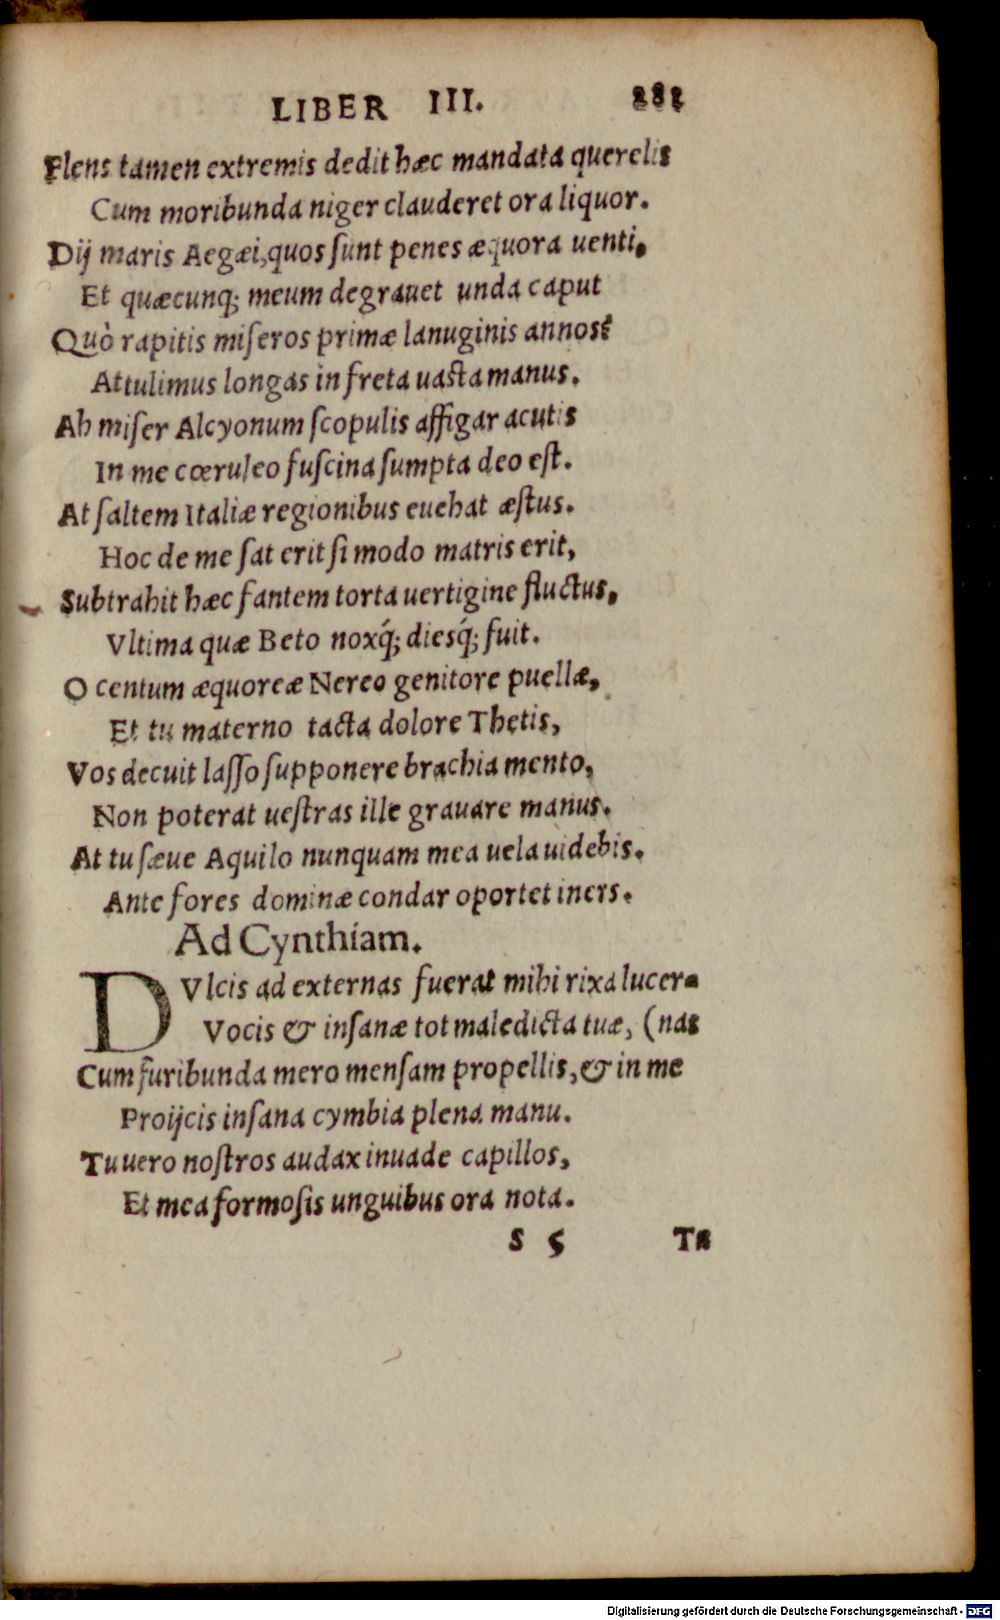 LIBER III. 281
Flens tamen extremis dedit hæc mandata querelis
Cum moribunda niger clauderet ora liquor.
Dij maris Aegæi, quos sunt penes æquora uenti,
Et quæcunq; meum degrauet unda caput
Quò rapitis miseros primæ lanuginis annos?
Attulimus longas in freta uasta manus.
Ah miser Alcyonum scopulis affigar acutis
In me cœruleo fuscina sumpta deo est.
At saltem Italiæ regionibus euehat æstus.
Hoc de me sat erit si modo matris erit,
Subtrahit hæc fantem torta uertigine fluctus,
Vltima quæ Beto noxq́; diesq́; fuit.
O centum æquoreæ Nereo genitore puellæ,
Et tu materno tacta dolore Thetis,
Vos decuit lasso supponere brachia mento,
Non poterat uestras ille grauare manus.
At tu sæue Aquilo nunquam mea uela uidebis.
Ante fores dominæ condar oportet iners.
Ad Cynthiam.
DVlcis ad externas fuerat mihi rixa lucer-
Vocis & insanæ tot maledicta tuæ, (nas
Cum furibunda mero mensam propellis, & in me
Proijcis insana cymbia plena manu.
Tu uero nostros audax inuade capillos,
Et mea formosis unguibus ora nota.
S 5 Tu
Digitalisierung gefördert durch die Deutsche Forschungsgemeinschaft - DFG